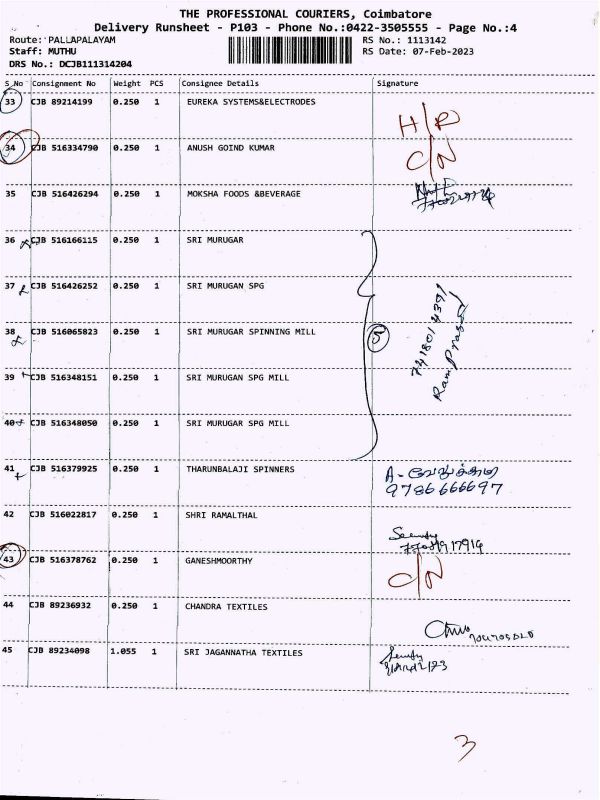 THE PROFESSIONAL COURIERS, Coimbatore
Delivery Runsheet - P103 - Phone No.:0422-3505555 - Page No.:4
Route: PALLAPALAYAM RS No.: 1113142
Staff: MUTHU RS Date: 07-Feb-2023
DRS No.: DCJB111314204
S_No Consignment No Weight PCS Consignee Details Signature
33 CJB 89214199 0.250 1 EUREKA SYSTEMS&ELECTRODES H/R
34 CJB 516334790 0.250 1 ANUSH GOIND KUMAR C/N
35 CJB 516426294 0.250 1 MOKSHA FOODS &BEVERAGE
36 CJB 516166115 0.250 1 SRI MURUGAR
37 CJB 516426252 0.250 1 SRI MURUGAN SPG
38 CJB 516065823 0.250 1 SRI MURUGAR SPINNING MILL 5
39 CJB 516348151 0.250 1 SRI MURUGAN SPG MILL
40 CJB 516348050 0.250 1 SRI MURUGAR SPG MILL
Ram Prasad
41 CJB 516379925 0.250 1 THARUNBALAJI SPINNERS A-
9786666697
42 CJB 516022817 0.250 1 SHRI RAMALTHAL
43 CJB 516378762 0.250 1 GANESHMOORTHY C/N
44 CJB 89236932 0.250 1 CHANDRA TEXTILES
45 CJB 89234098 1.055 1 SRI JAGANNATHA TEXTILES
3